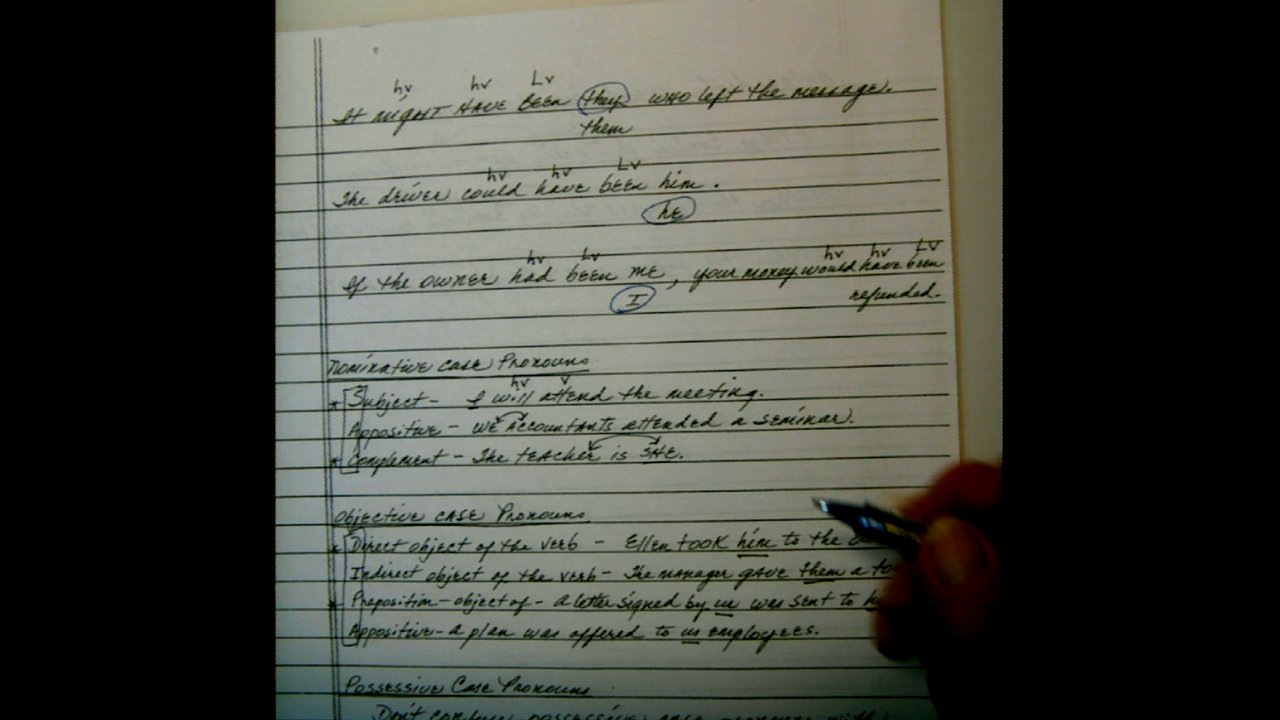 hv hv Lv
It might HAVE BEEN they who left the message.
them
hv hv Lv
The driver could have been him.
he
hv Lv hv hv LV
If the owner had been me, your money would have been
I
refunded.
Nominative case Pronouns
hv v
* Subject - I will attend the meeting.
Appositive - we Accountants attended a seminar.
* Complement - The teacher is SHE.
Objective case Pronouns
* Direct object of the verb - Ellen took him to the
Indirect object of the verb - The manager gave them a
* Preposition - object of - a letter signed by was sent to
Appositive - a plan was offered to us employees.
Possessive Case Pronouns
Don't confuse possessive case pronouns with